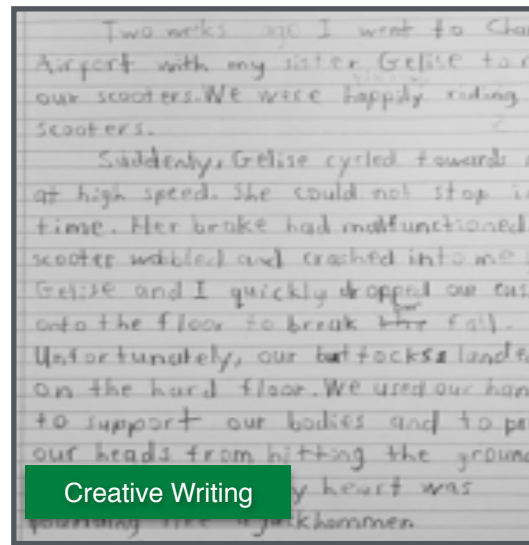 Two weeks ago I went to Cha
Airport with my sister Gelise to r
our scooters. We were happily riding
scooters.
Suddenly, Gelise cycled towards
at high speed. She could not stop i
time. Her brake had malfunctioned.
scooter wobled and crashed into me
Gelise and I quickly dropped our cus
onto the floor to break our fall.
Unfortunately, our buttocks lande
on the hard floor. We used our han
to support our bodies and to p
our heads from hitting the groun
Creative Writing
y heart was
pounding like a jackhammer.